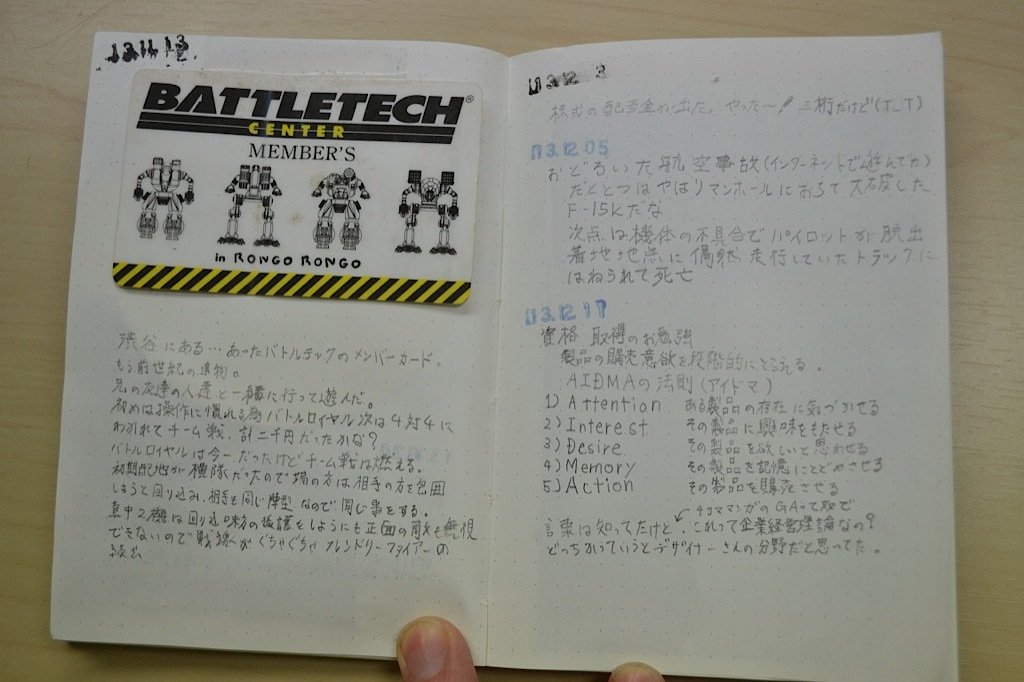 13.11.13
BATTLETECH®
CENTER
MEMBER'S
in RONGO RONGO
渋谷にある…あったバトルテックのメンバーカード。
もう前世紀の遺物。
兄の友達の人達と一緒に行って遊んだ。
初めは操作に慣れる為バトルロイヤル次は4対4に
わかれてチーム戦、計二千円だったかな?
バトルロイヤルは今一だったけどチーム戦は燃える。
初期配地が横隊だったので端の方は相手の方を包囲
しようと回り込み、相手も同じ陣型なので同じ事をする。
真中2機は回り込味方の援護をしようにも正面の敵も無視
できないので戦線がぐちゃぐちゃ フレンドリーファイアーの
続出
13.12.3
株式の配当金が出た。やった～! 三桁だけど(T_T)
13.12.05
おどろいた航空事故(インターネットで遊んでた)
だととつはやはりマンホールにおちて大破した
F-15Kだな
次点は機体の不具合でパイロットが脱出
着地地点に偶然走行していたトラックに
はねられて死亡
13.12.17
資格取得のお勉強
製品の購売意欲を段階的にとらえる。
AIDMAの法則(アイドマ)
1) Attention ある製品の存在に気づかせる
2) Interest その製品に興味をもたせる
3) Desire その製品を欲しいと思わせる
4) Memory その製品を記憶にとどめさせる
5) Action その製品を購売させる
4コママンガのGAって奴で
言葉は知ってたけど、これって企業経営理論なの?
どっちかっていうとデザイナーさんの分野だと思ってた。